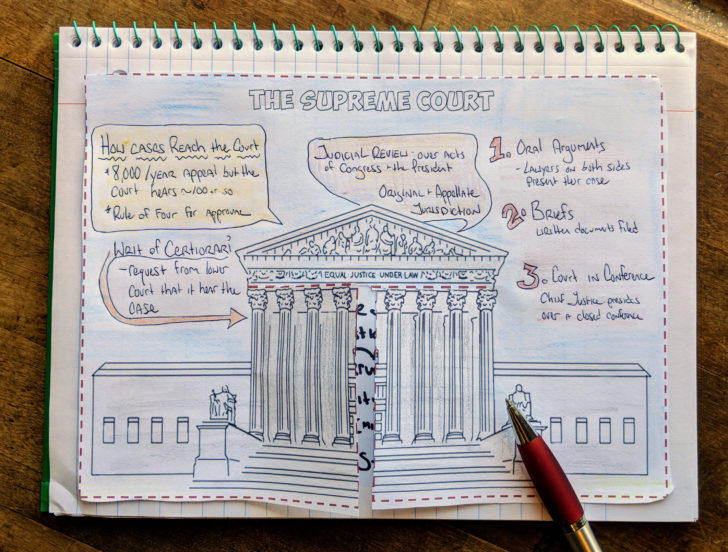 THE SUPREME COURT
How Cases Reach the Court
* 8,000/year appeal but the
Court hears ~100 or so
* Rule of Four for approval
Writ of Certiorari
- request from lower
Court that it hear the
Case
Judicial Review - over acts
of Congress + the President
Original + Appellate
Jurisdiction
1. Oral Arguments
- Lawyers on both sides
present their case
2. Briefs
written documents filed
3. Court in Conference
Chief Justice presides
over a closed conference
EQUAL JUSTICE UNDER LAW